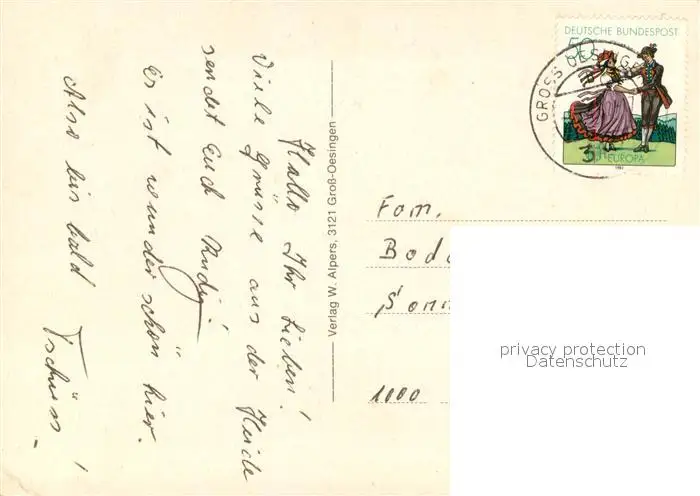 Hallo Ihr Lieben!
Viele Grüsse aus der Heide
sendet Euch Rudi!
Es ist wunderschön hier.
Also bis bald Tschüss!
Verlag W. Alpers, 3121 Groß-Oesingen
DEUTSCHE BUNDESPOST
50
EUROPA
GROSS OESING
3
Fam.
Bod
Sonn
1000
privacy protection
Datenschutz